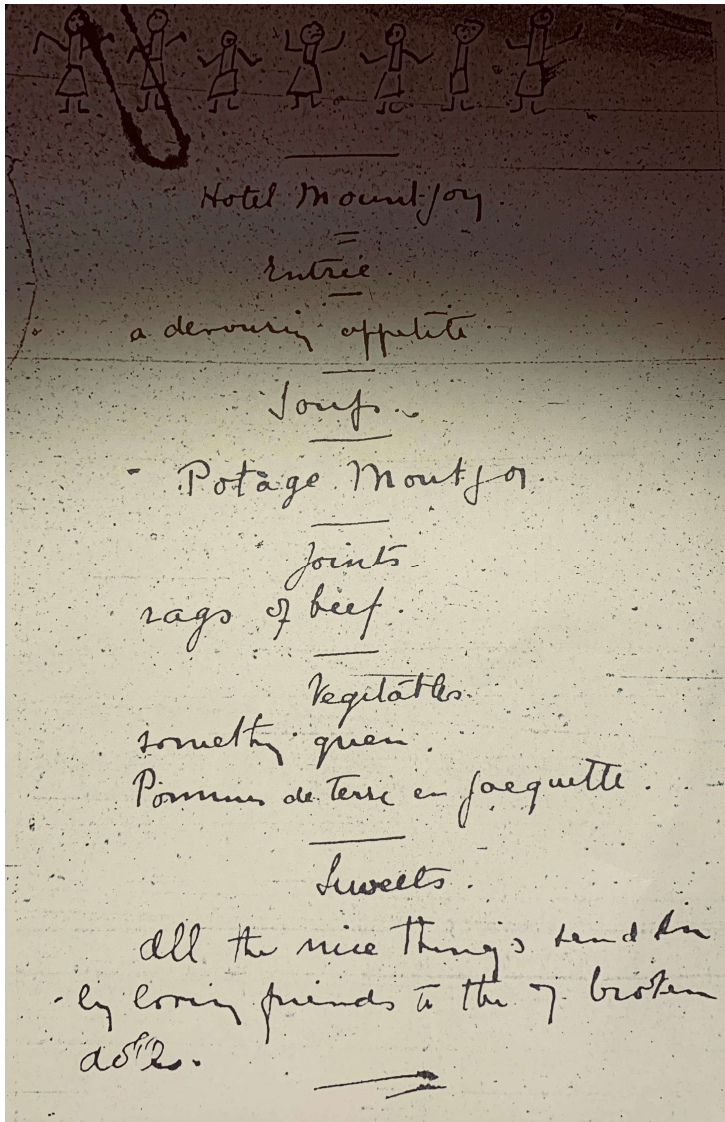 Hotel Mountjoy.
Entrée.
a devouring appetite.
Soups.
Potage Montjoy.
Joints.
rags of beef.
Vegitables.
something green.
Pommes de terre en Jacquette.
Sweets.
All the nice things send in
by loving friends to the 7 broken
dolls.